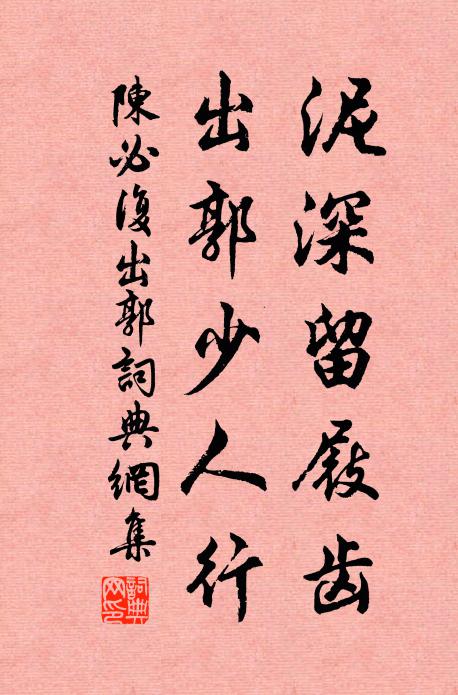 泥深留屐齿
出郭少人行
陳必復出郭詞典網集
詞典网印